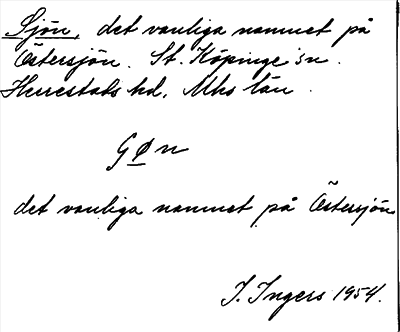 Sjön, det vanliga namnet på
Östersjön. St. Köpinge sn.
Herrestads hd, Mhs län.
GØn
det vanliga namnet på Östersjön
I. Ingers 1954.